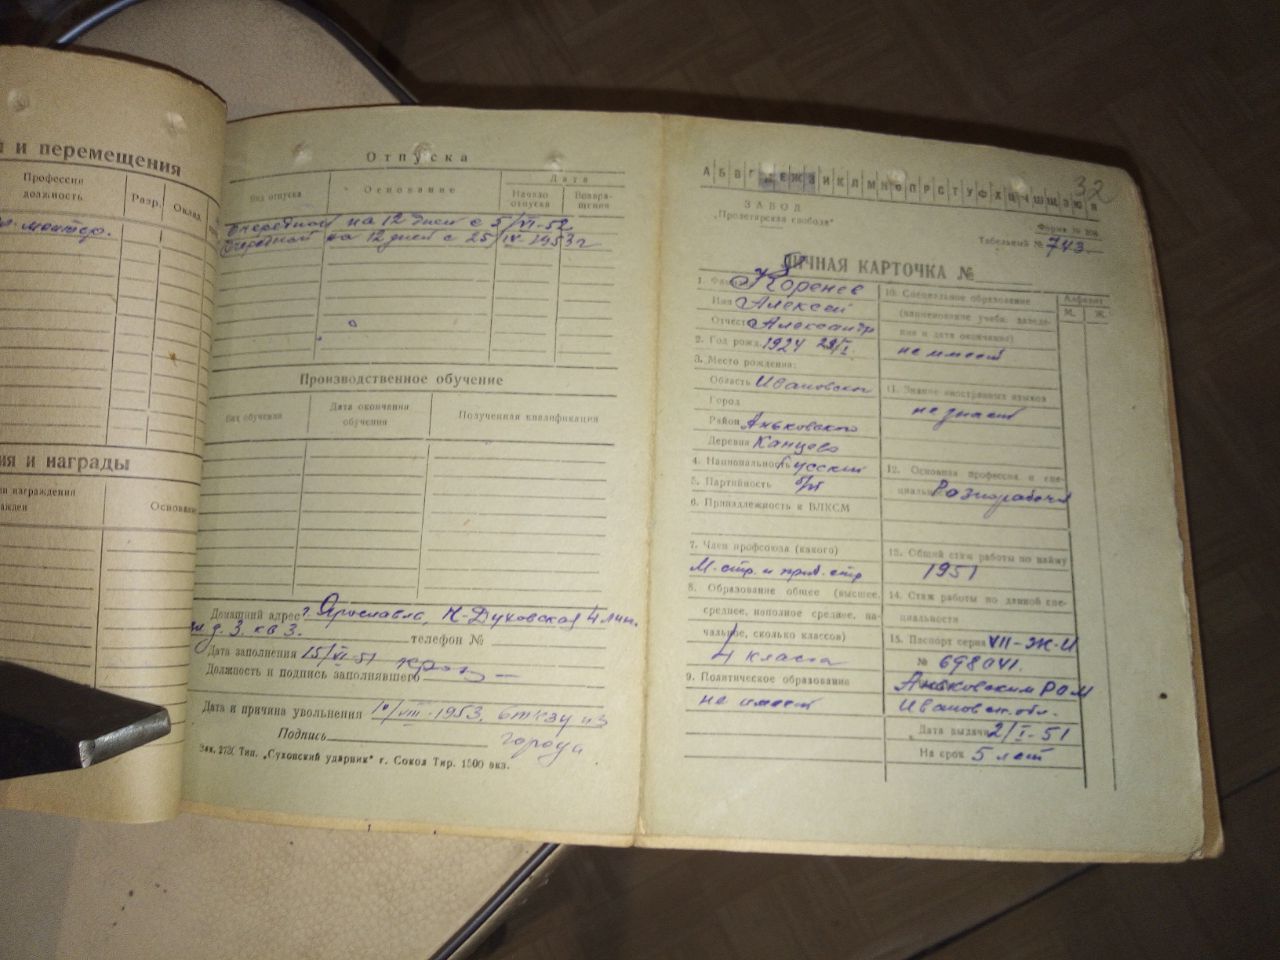 и перемещения
Профессия
должность
Разр.
Оклад
л. монтер.
ия и награды
ии награждения
Основание
Отпуска
Вид отпуска
Основание
Дата
Начало
отпуска
Возвра-
щения
Очередной на 12 дней с 5/VI-52
Очередной на 12 дней с 25/IV-1953 г
Производственное обучение
Вид обучения
Дата окончания
обучения
Полученная квалификация
Домашний адрес г. Ярославль, К-Духовская 4 лин.
д. 3. кв 3.
телефон №
Дата заполнения 15/VI-51
Должность и подпись заполнявшего
Дата и причина увольнения 10/VIII-1953. въезду из
города
Подпись
Зак. 2730 Тип. „Сухонский ударник" г. Сокол Тир. 1500 экз.
32
А Б В Г Д Е Ж З И К Л М Н О П Р С Т У Ф Х Ц Ч Ш Щ Э Ю Я
ЗАВОД
„Пролетарская свобода"
Форма №
Табельный № 743
ЛИЧНАЯ КАРТОЧКА №
1. Фам. Коренев
Имя Алексей
Отчест. Александр
2. Год рожд. 1924 29/I.
3. Место рождения:
Область Ивановская
Город
Район Аньковского
Деревня Канцево
4. Национальность русский
5. Партийность б/п
6. Принадлежность к ВЛКСМ
7. Член профсоюза (какого)
М. стр. и приб. стр
8. Образование общее (высшее,
среднее, неполное среднее, на-
чальное, сколько классов)
4 класса
9. Политическое образование
не имеет
10. Специальное образование
(наименование учебн. заведе-
ния и дата окончания)
не имеет
11. Знание иностранных языков
не знает
12. Основная профессия и спе-
циальн. Разнорабочий
13. Общий стаж работы по найму
1951
14. Стаж работы по данной спе-
циальности
15. Паспорт серия VII-ЖИ
№ 698041.
Аньковским РОМ
Ивановск. обл.
Дата выдачи 2/I-51
На срок 5 лет
Алфавит
М.
Ж.